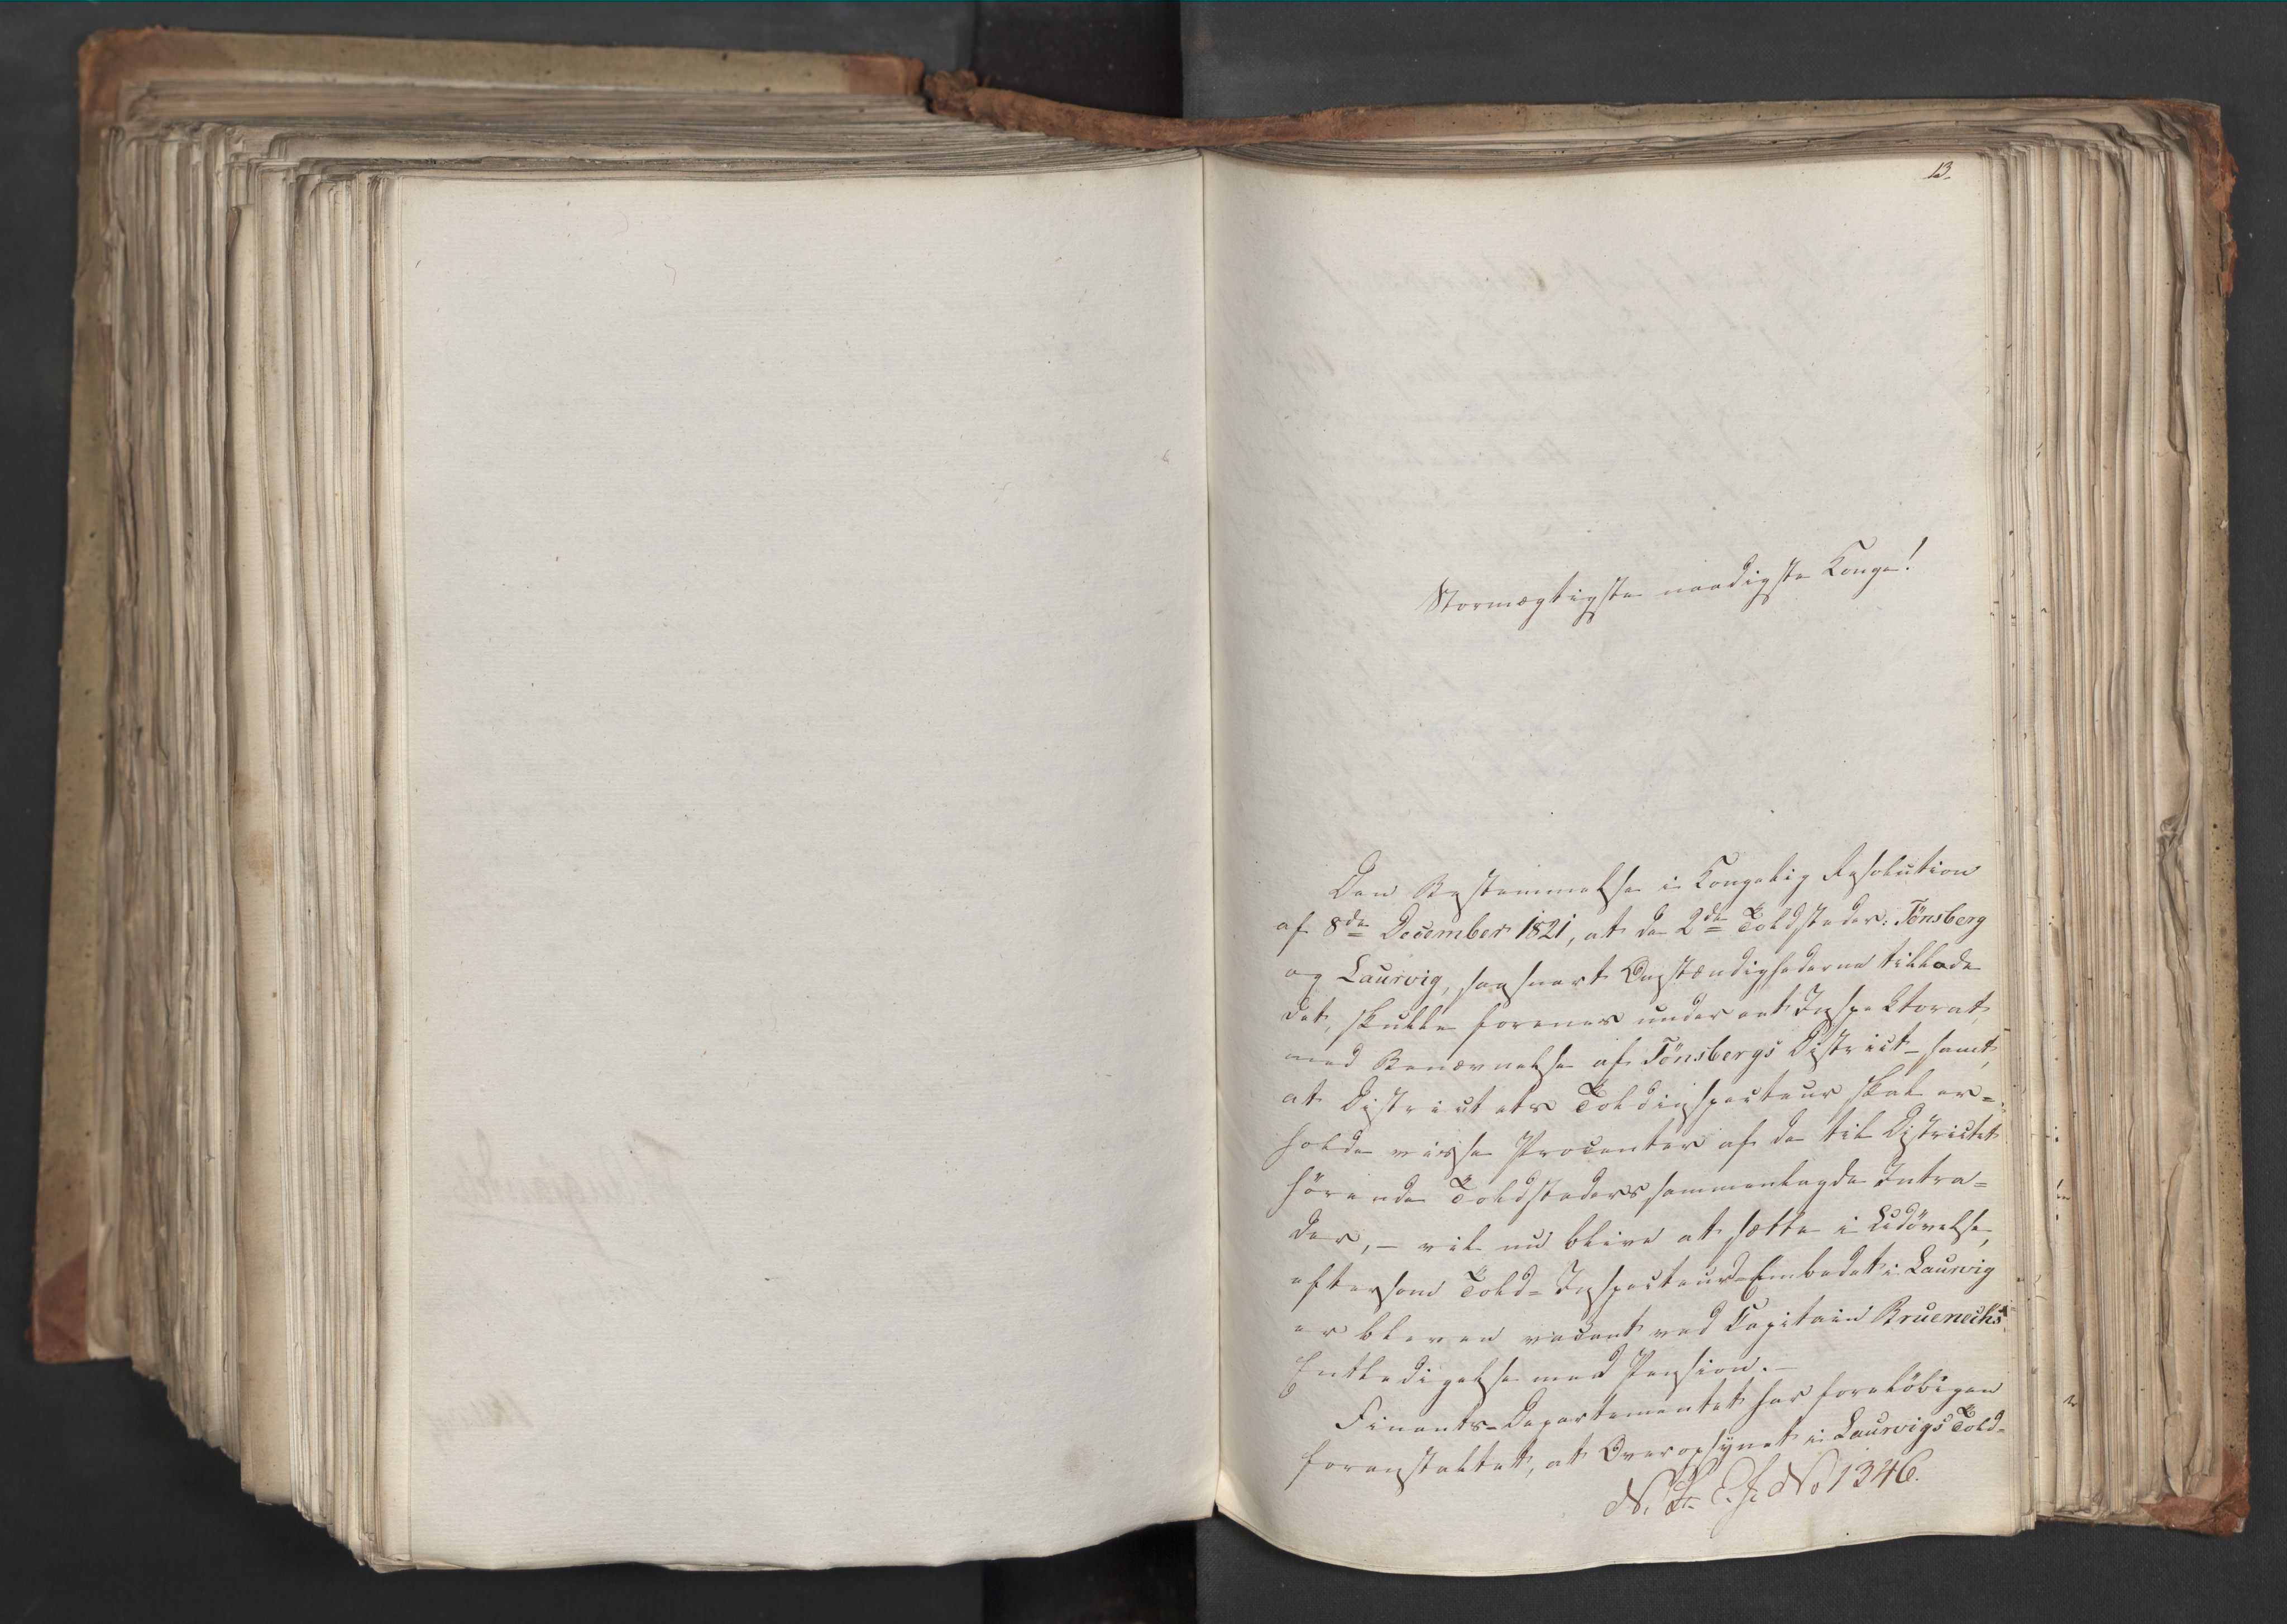 13.
Stormægtigste naadigste Konge!
Den Bestemmelse i Kongelig Resolution
af 8de December 1821, at de 2de Toldsteder: Tönsberg
og Laurvig, saasnart Omstændighederne tillode
det, skulle forenes under eet Inspektorat,
med Benævnelse af Tönsbergs District – samt,
at Districtets Toldinspecteur skal er=
holde visse Procenter af de til Districtet
hörende Toldsteders sammenlagde Intra=
der, – vil nu blive at sætte i Udövelse,
eftersom Told=Inspecteur=Embedet i Laurvig
er bleven vacant ved Capitain Bruenechs
Entledigelse med Pension. –
Finants=Departementet har forelöbigen
foranstaltet, at Overopsynet i Laurvigs Told=
N. No 1346.